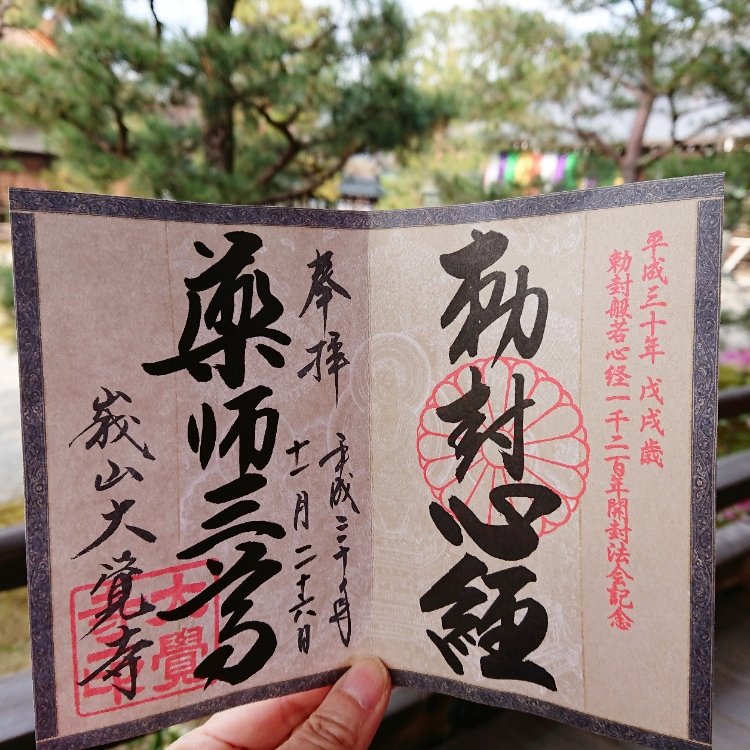 平成三十年 戊戌歳
勅封般若心経一千二百年開封法会記念
勅封心経
奉拝
平成三十年
十一月二十六日
薬師三尊
嵯山大覺寺
大覺